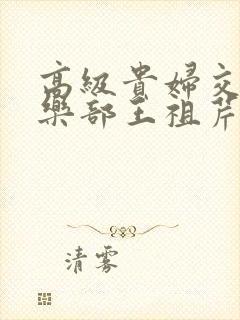 高級貴婦交
樂部王祖芹
清霧